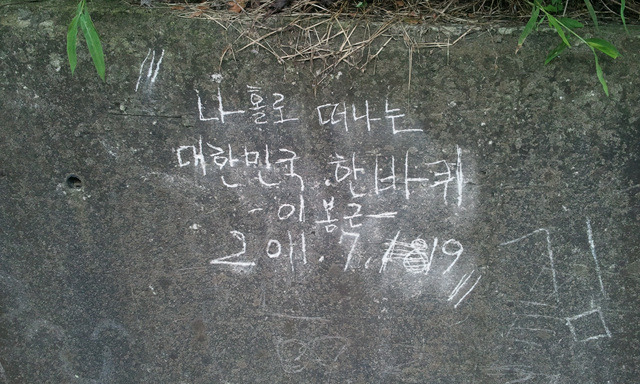 "
나홀로 떠나는
대한민국 한바퀴
- 이봉근 -
2011.7.19
"